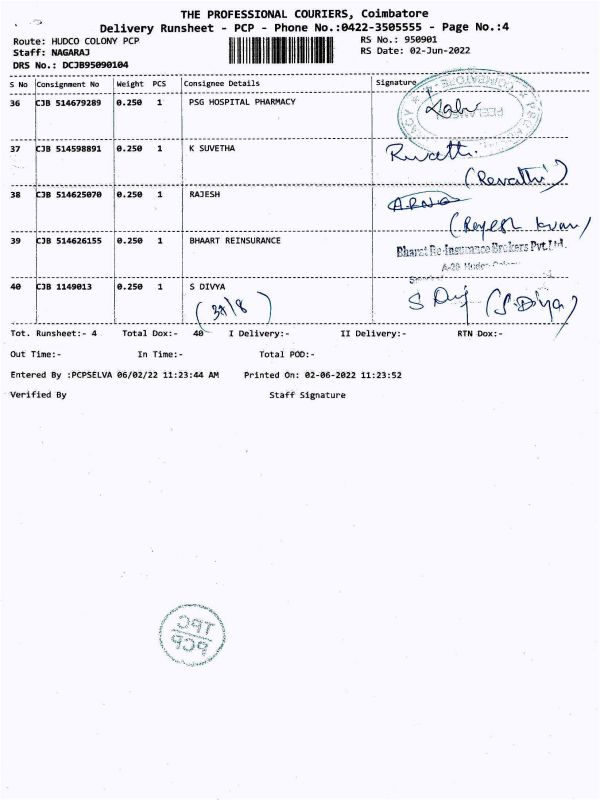 THE PROFESSIONAL COURIERS, Coimbatore
Delivery Runsheet - PCP - Phone No.:0422-3505555 - Page No.:4
Route: HUDCO COLONY PCP RS No.: 950901
Staff: NAGARAJ RS Date: 02-Jun-2022
DRS No.: DCJB95090104
S No Consignment No Weight PCS Consignee Details Signature
36 CJB 514679289 0.250 1 PSG HOSPITAL PHARMACY
37 CJB 514598891 0.250 1 K SUVETHA
(Revathi)
38 CJB 514625070 0.250 1 RAJESH
39 CJB 514626155 0.250 1 BHAART REINSURANCE
Bharat Re-Insurance Brokers Pvt.Ltd.
40 CJB 1149013 0.250 1 S DIVYA
S Div (S.Divya)
Tot. Runsheet:- 4 Total Dox:- 40 I Delivery:- II Delivery:- RTN Dox:-
Out Time:- In Time:- Total POD:-
Entered By :PCPSELVA 06/02/22 11:23:44 AM Printed On: 02-06-2022 11:23:52
Verified By Staff Signature
TPC
PCP